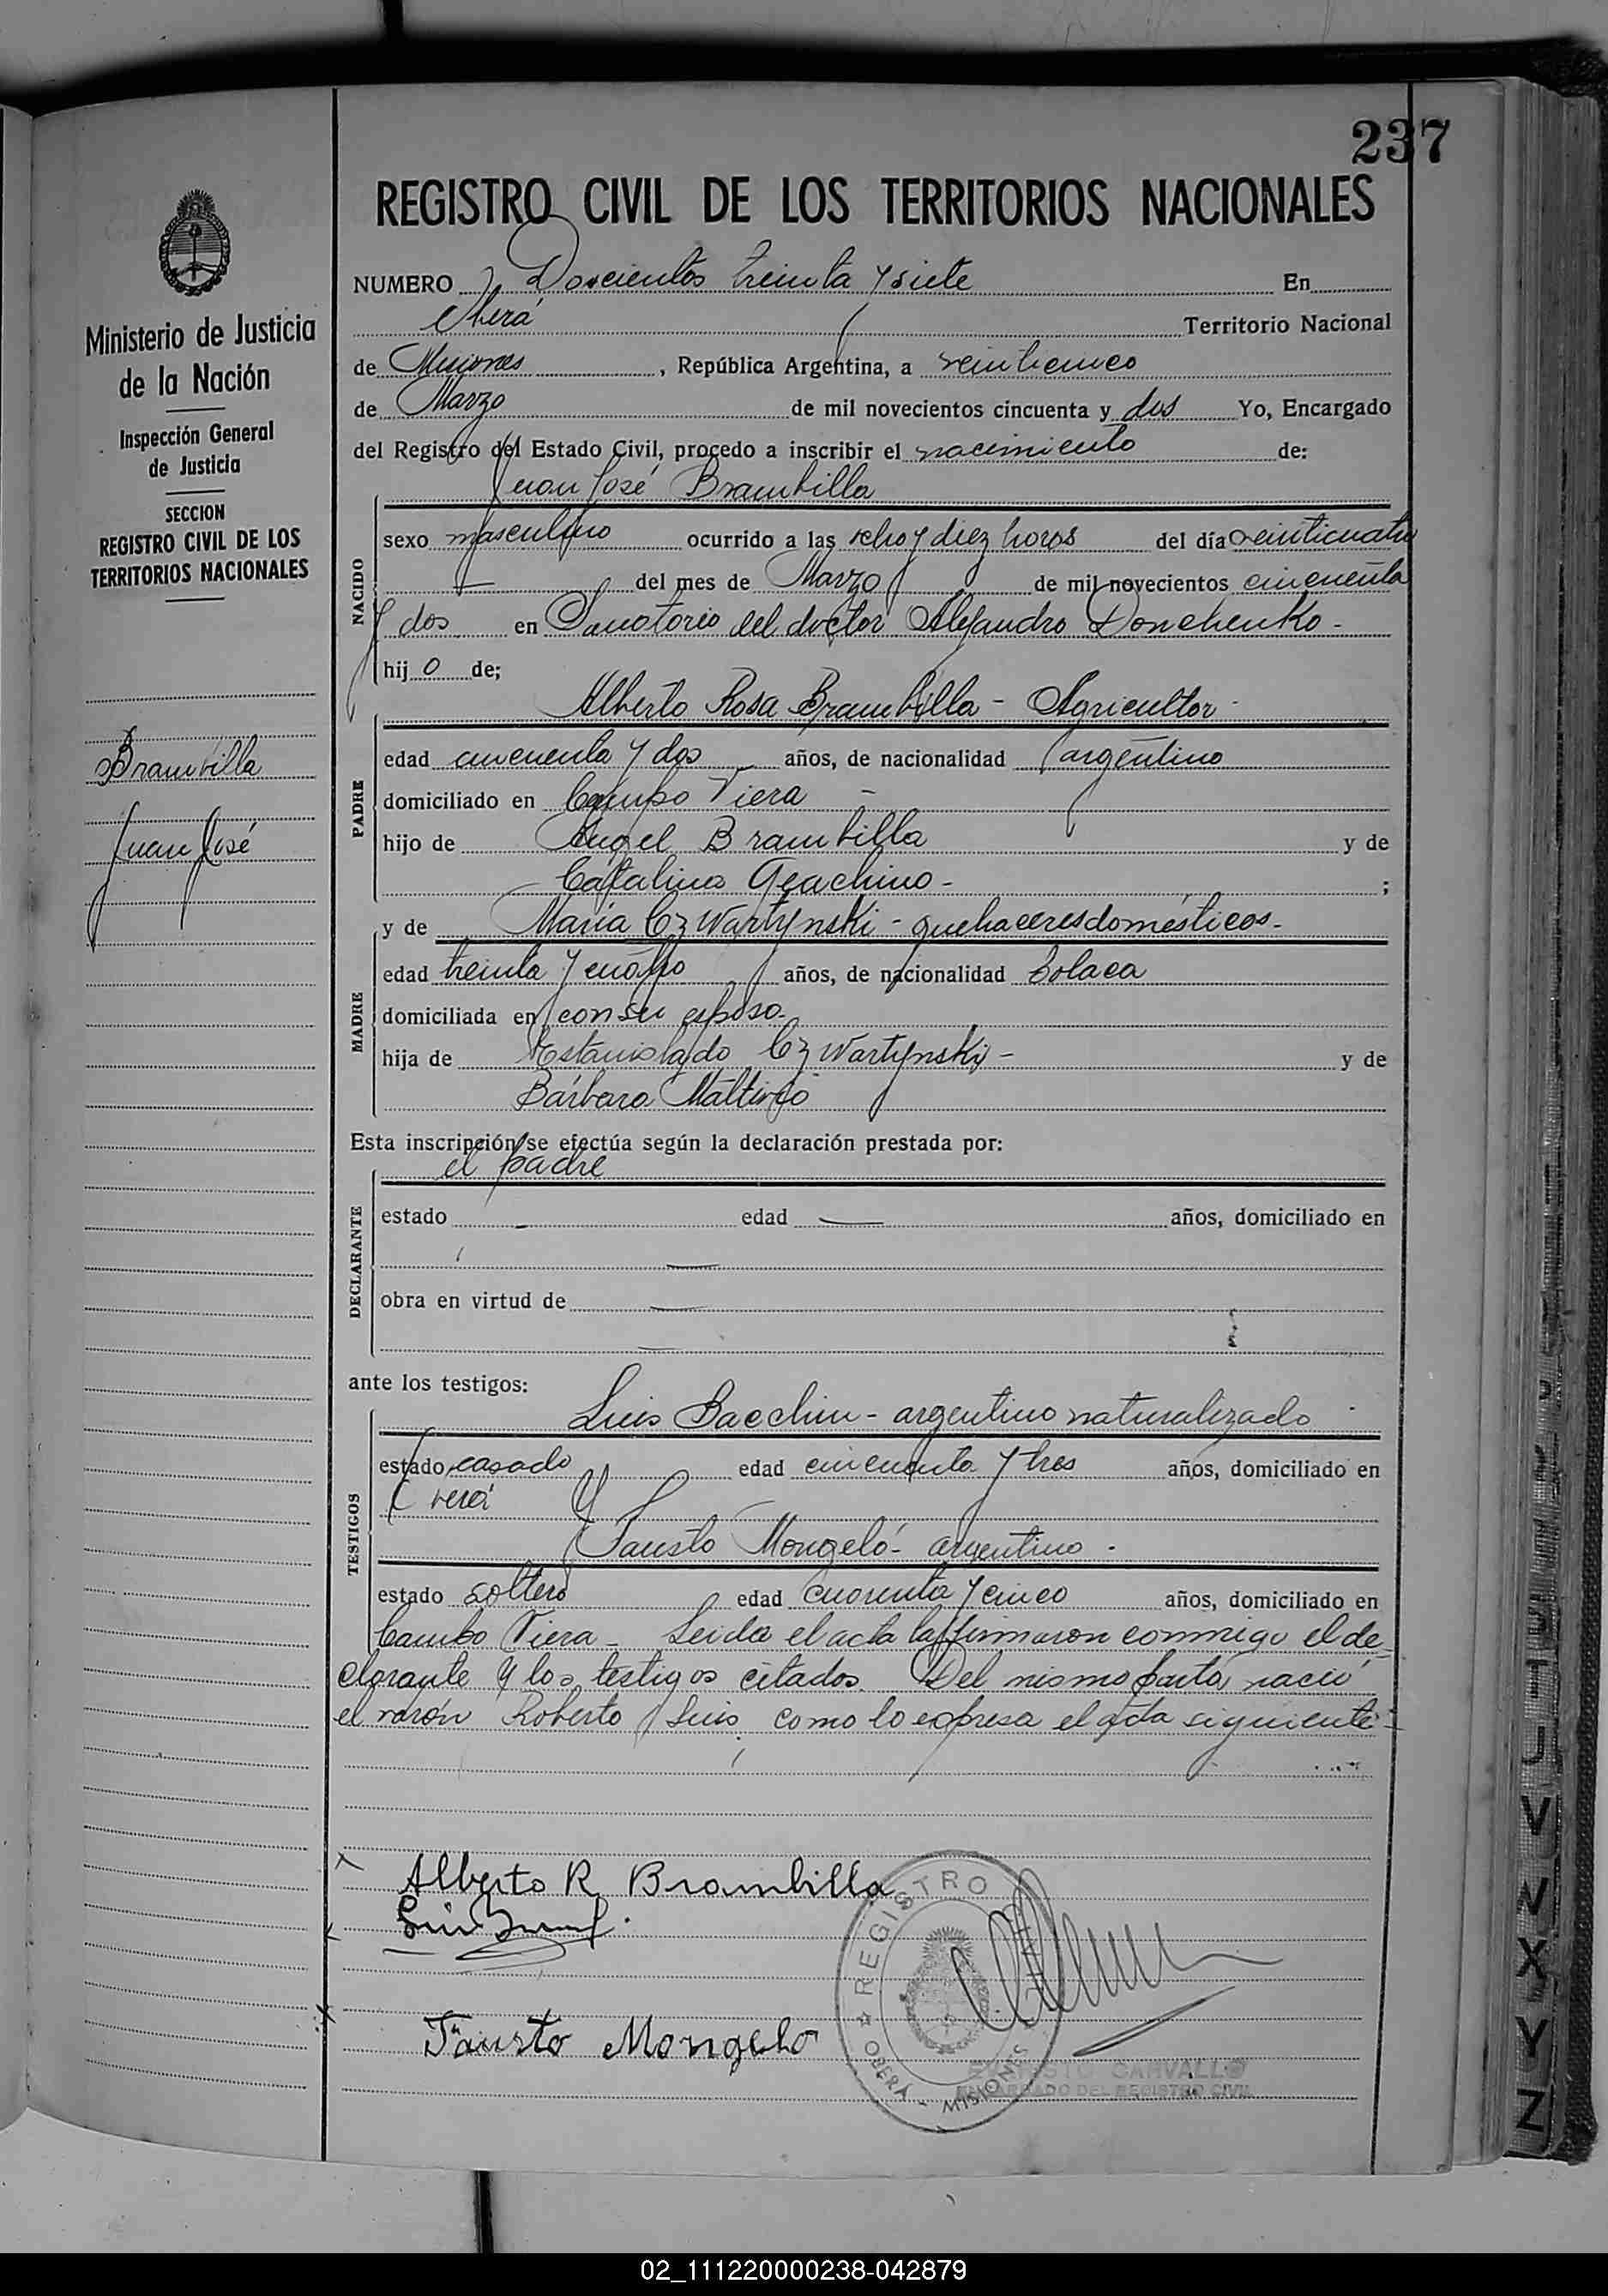 237
REGISTRO CIVIL DE LOS TERRITORIOS NACIONALES
Ministerio de Justicia
de la Nación
Inspección General
de Justicia
SECCION
REGISTRO CIVIL DE LOS
TERRITORIOS NACIONALES
Brambilla
Juan José
NUMERO Doscientos treinta y siete En
Oberá Territorio Nacional
de Misiones, República Argentina, a veinticinco
de Marzo de mil novecientos cincuenta y dos Yo, Encargado
del Registro del Estado Civil, procedo a inscribir el nacimiento de:
Juan José Brambilla
NACIDO
sexo masculino ocurrido a las ocho y diez horas del día veinticuatro
del mes de Marzo de mil novecientos cincuenta
y dos en Sanatorio del doctor Alejandro Donchenko -
hij o de;
Alberto Rosa Brambilla - Agricultor -
PADRE
edad cincuenta y dos años, de nacionalidad argentino
domiciliado en Campo Viera -
hijo de Angel Brambilla y de
Catalina Geachino - ;
y de María Czwartynski - quehaceres domésticos -
MADRE
edad treinta y cuatro años, de nacionalidad polaca
domiciliada en con su esposo -
hija de Estanislado Czwartynski - y de
Bárbara
Esta inscripción se efectúa según la declaración prestada por:
el padre
DECLARANTE
estado - edad — años, domiciliado en
—
obra en virtud de —
—
ante los testigos:
Luis Bacchin - argentino naturalizado
TESTIGOS
estado casado edad cincuenta y tres años, domiciliado en
Oberá y
Fausto Mongeló - argentino -
estado soltero edad cuarenta y cinco años, domiciliado en
Campo Viera - Leida el acta la firmaron conmigo el de-
clarante y los testigos citados. Del mismo parto, nació
el varón Roberto Luis, como lo expresa el acta siguiente -
Alberto R. Brambilla
Fausto Mongelo
REGISTRO CIVIL
OBERÁ - MISIONES
CARVALLO
ENCARGADO DEL REGISTRO CIVIL
J
V
W
X
Y
Z
02_111220000238-042879